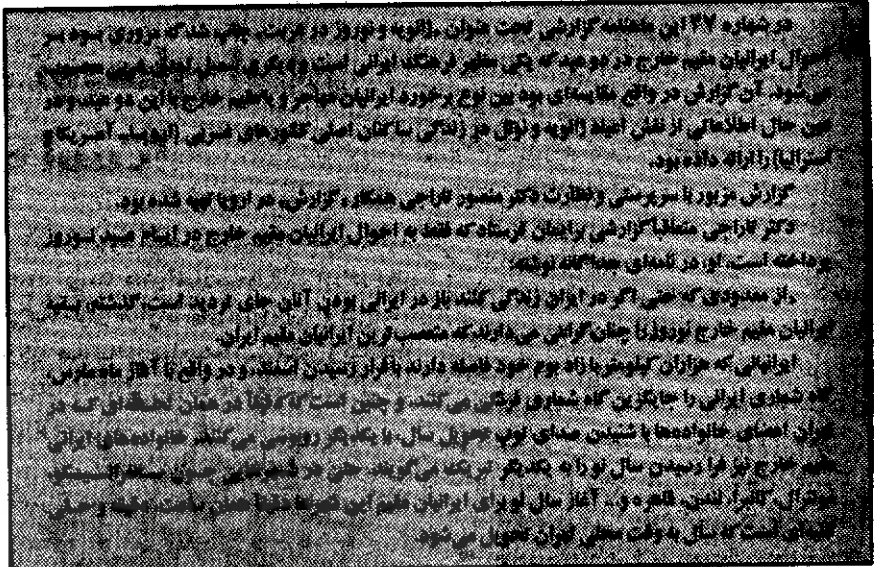 در شماره ۲۷ این ماهنامه گزارشی تحت عنوان «ژانویه و نوروز در غربت» چاپ شد که مروری بود بر
احوال ایرانیان مقیم خارج در دو عید که یکی مظهر فرهنگ ایرانی است و دیگری
می‌شود. آن گزارش در واقع مقایسه‌ای بود بین نوع برخورد ایرانیان مهاجر و یا مقیم خارج با این دو عید، و در
عین حال اطلاعاتی از نقش اعیاد ژانویه و نوئل در زندگی ساکنان اصلی کشورهای غربی (اروپا، آمریکا و
استرالیا) را ارائه داده بود.
گزارش مزبور با سرپرستی و نظارت دکتر منصور تاراجی همکار «گزارش» در اروپا تهیه شده بود.
دکتر تاراجی متعاقباً گزارشی برایمان فرستاد که فقط به احوال ایرانیان مقیم خارج در ایام عید نوروز
پرداخته است. او در نامه‌ای جداگانه نوشته:
«از معدودی که حتی اگر در ایران زندگی کنند باز در ایرانی بودن آنان جای تردید است، گذشته، بقیه
ایرانیان مقیم خارج نوروز را چنان گرامی می‌دارند که متعصب‌ترین ایرانیان مقیم ایران.
ایرانیانی که هزاران کیلومتر با زاد بوم خود فاصله دارند با فرا رسیدن اسفند، و در واقع با آغاز ماه مارس،
گاه شماری ایرانی را جایگزین گاه شماری فرنگی می‌کنند، و چنین است که دقیقاً در همان لحظه‌ای که در
ایران اعضای خانواده‌ها با شنیدن صدای توپ تحویل سال، با یکدیگر روبوسی می‌کنند، خانواده‌های ایرانی
مقیم خارج نیز فرا رسیدن سال نو را به یکدیگر تبریک می‌گویند. حتی در شهرهایی چون سانفرانسیسکو،
مونترال، کانبرا، لندن، قاهره و... آغاز سال نو برای ایرانیان مقیم این شهرها دقیقاً همان ساعت، دقیقه و حتی
ثانیه‌ای است که سال به وقت محلی تهران تحویل می‌شود.